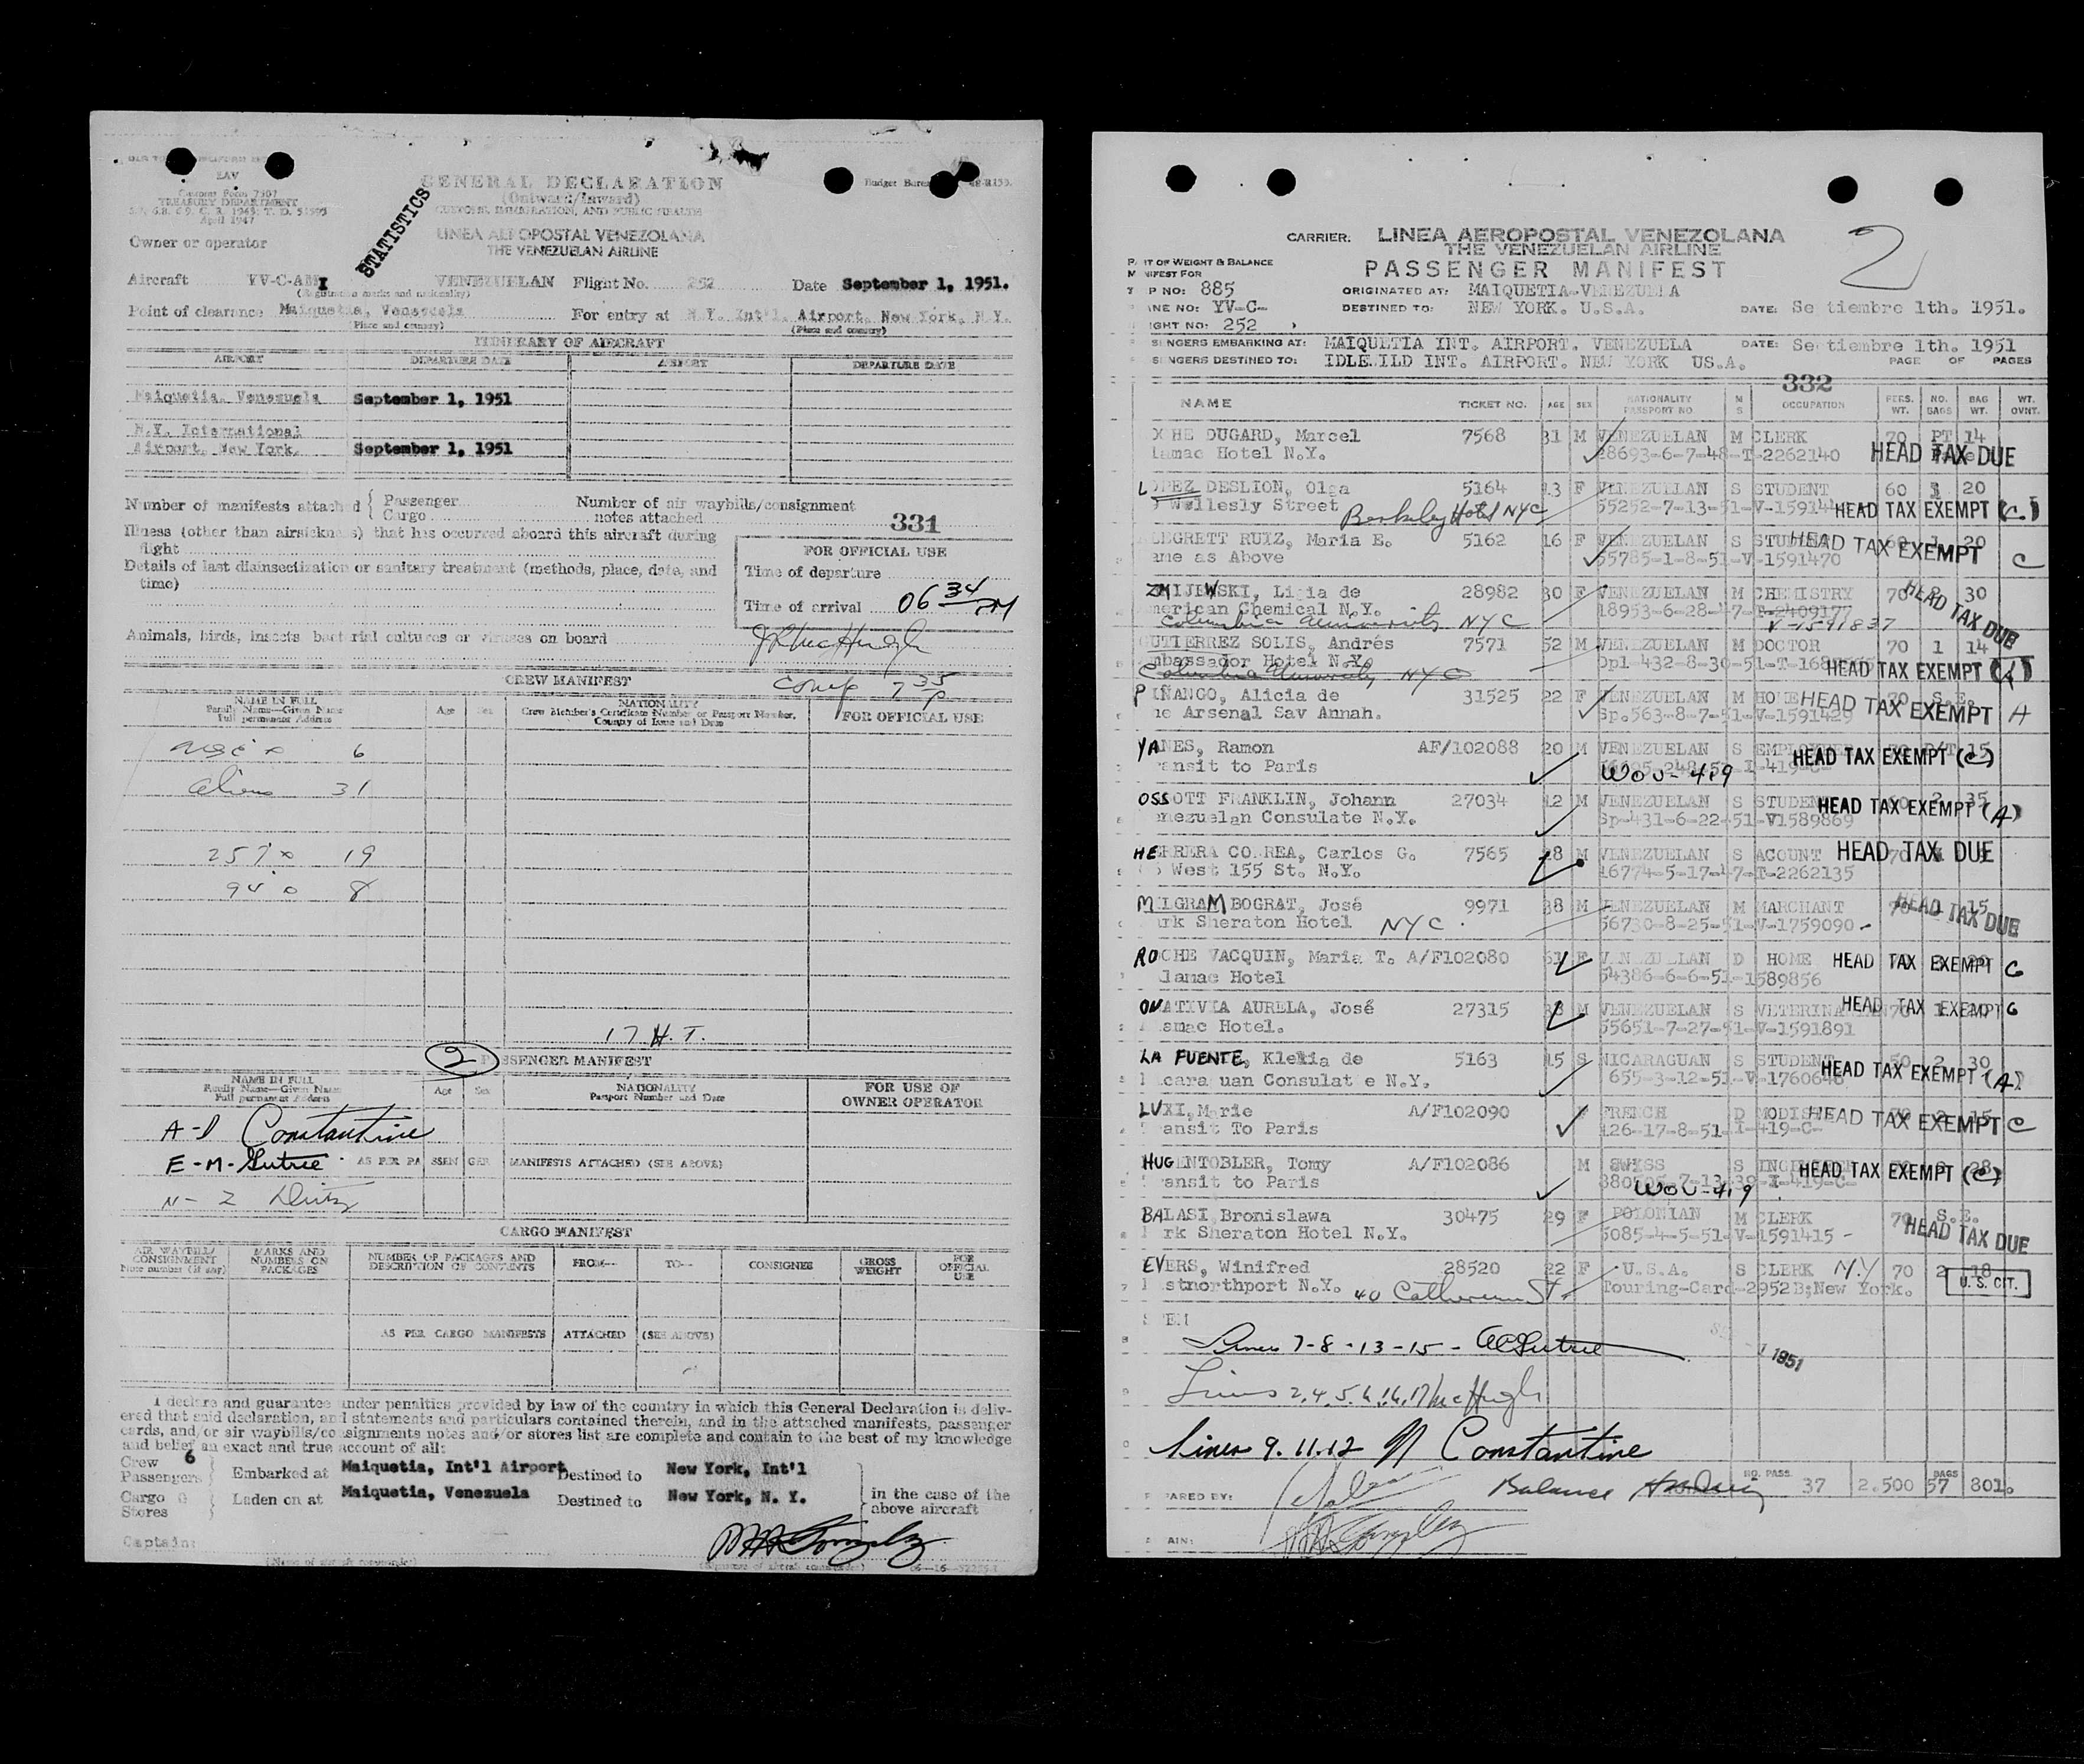 EAV
Customs Form 7507
TREASURY DEPARTMENT
April 1947
GENERAL DECLARATION
(Outward/Inward)
CUSTOMS, IMMIGRATION, AND PUBLIC HEALTH
STATISTICS
Owner or operator
LINEA AEROPOSTAL VENEZOLANA
THE VENEZUELAN AIRLINE
Aircraft
VENEZUELAN Flight No. 252 Date September 1, 1951.
(Registration marks and nationality)
Point of clearance Maiquetia, Venezuela For entry at N.Y. Int'l. Airport, New York, N.Y.
(Place and country) (Place and country)
ITINERARY OF AIRCRAFT
AIRPORT DEPARTURE DATE AIRPORT DEPARTURE DATE
Maiquetia, Venezuela September 1, 1951
N.Y. International
Airport, New York. September 1, 1951
Number of manifests attached { Passenger Number of air waybills/consignment
Cargo notes attached
331
Illness (other than airsickness) that has occurred aboard this aircraft during
flight
Details of last disinsectization or sanitary treatment (methods, place, date, and
time)
FOR OFFICIAL USE
Time of departure
Time of arrival 06 34 PM
Animals, birds, insects, bacterial cultures or viruses on board
JR McHugh
Comp 7 35 P
CREW MANIFEST
NAME IN FULL
Family Name—Given Name
Full permanent Address
Age Sex
NATIONALITY
Crew Member's Certificate Number or Passport Number,
Country of Issue and Date
FOR OFFICIAL USE
6
Aliens 31
257 19
94 8
17 H.T.
2
PASSENGER MANIFEST
NAME IN FULL
Family Name—Given Name
Full permanent Address
Age Sex
NATIONALITY
Passport Number and Date
FOR USE OF
OWNER OPERATOR
A-D Constantine
E-M- Gutrie AS PER PASSENGER MANIFESTS ATTACHED (SEE ABOVE)
N-Z
CARGO MANIFEST
AIR WAYBILL/
CONSIGNMENT
Note number (if any)
MARKS AND
NUMBERS ON
PACKAGES
NUMBER OF PACKAGES AND
DESCRIPTION OF CONTENTS
FROM— TO— CONSIGNEE
GROSS
WEIGHT
FOR
OFFICIAL
USE
AS PER CARGO MANIFESTS ATTACHED (SEE ABOVE)
I declare and guarantee under penalties provided by law of the country in which this General Declaration is deliv-
ered that said declaration, and statements and particulars contained therein, and in the attached manifests, passenger
cards, and/or air waybills/consignments notes and/or stores list are complete and contain to the best of my knowledge
and belief an exact and true account of all:
Crew 6
Passengers Embarked at Maiquetia, Int'l Airport Destined to New York, Int'l
Cargo
Stores Laden on at Maiquetia, Venezuela Destined to New York, N. Y.
in the case of the
above aircraft
Captain:
CARRIER: LINEA AEROPOSTAL VENEZOLANA
THE VENEZUELAN AIRLINE
PASSENGER MANIFEST
2
P RT OF WEIGHT & BALANCE
M NIFEST FOR
T P NO: 885 ORIGINATED AT: MAIQUETIA-VENEZUELA
ANE NO: YV-C- DESTINED TO: NEW YORK. U.S.A. DATE: Se tiembre 1th. 1951.
IGHT NO: 252
S NGERS EMBARKING AT: MAIQUETIA INT. AIRPORT. VENEZUELA DATE: Se tiembre 1th. 1951
S NGERS DESTINED TO: IDLEWILD INT. AIRPORT. NEW YORK US.A. PAGE OF PAGES
332
NAME TICKET NO. AGE SEX NATIONALITY PASSPORT NO M S OCCUPATION PERS. WT. NO. BAGS BAG WT. WT. OVNT.
HE DUGARD, Marcel 7568 31 M VENEZUELAN M CLERK 70 PT 14
lamac Hotel N.Y. 28693-6-7-48-T-2262140 HEAD TAX DUE
LOPEZ DESLION, Olga 5164 13 F VENEZUELAN S STUDENT 60 1 20
Wellesly Street Berkeley Hotel NYC 55252-7-13-51-V-15914 HEAD TAX EXEMPT (C)
LEGRETT RUIZ, Maria E. 5162 16 F VENEZUELAN S STUDENT 20
ame as Above 55785-1-8-51-V-1591470 HEAD TAX EXEMPT C
ZMIJEWSKI, Ligia de 28982 30 F VENEZUELAN M CHEMISTRY 70 2 30
merican Chemical N.Y. 18953-6-28-47-T-2409177 HEAD TAX DUE
Columbia University NYC V-1591837
GUTIERREZ SOLIS, Andrés 7571 52 M VENEZUELAN M DOCTOR 70 1 14
mbassador Hotel N.Y. Dpl-432-8-30-51-T-168 HEAD TAX EXEMPT (A)
Columbia University NYC
PIÑANGO, Alicia de 31525 22 F VENEZUELAN M HOME 70 S.E.
ne Arsenal Sav Annah. Sp.563-8-7-51-V-1591429 HEAD TAX EXEMPT A
YANES, Ramon AF/102088 20 M VENEZUELAN S 15
ansit to Paris WOV-419 HEAD TAX EXEMPT (C)
OSSOTT FRANKLIN, Johann 27034 12 M VENEZUELAN S STUDENT 2 35
enezuelan Consulate N.Y. Sp-431-6-22-51-V1589869 HEAD TAX EXEMPT (A)
HERRERA CORREA, Carlos G. 7565 28 M VENEZUELAN S ACOUNT 70 HEAD TAX DUE
West 155 St. N.Y. 16774-5-17-47-T-2262135
MILGRAM BOGRAT, José 9971 38 M VENEZUELAN M MARCHANT 70 15
ark Sheraton Hotel NYC 56730-8-25-51-V-1759090 HEAD TAX DUE
ROCHE VACQUIN, Maria T. A/F102080 61 F VENEZUELAN D HOME HEAD TAX EXEMPT C
lamac Hotel 54386-6-6-51-1589856
ONATIVIA AURELA, José 27315 38 M VENEZUELAN S HEAD TAX EXEMPT C
amac Hotel. 55651-7-27-51-V-1591891
LA FUENTE, Klelia de 5163 15 S NICARAGUAN S STUDENT 50 2 30
icara uan Consulat e N.Y. 655-3-12-51-V-1760648 HEAD TAX EXEMPT (A)
LUXI, Marie A/F102090 F FRENCH D MODIS 70 2 15
ansit To Paris 126-17-8-51-I-419-C- HEAD TAX EXEMPT C
HUGENTOBLER, Tomy A/F102086 M SWISS S 28
ansit to Paris WOV-419 HEAD TAX EXEMPT (C)
BALASI, Bronislawa 30475 29 F POLONIAN M CLERK 70 S.E.
rk Sheraton Hotel N.Y. 5085-4-5-51-V-1591415 - HEAD TAX DUE
EVERS, Winifred 28520 22 F U.S.A. S CLERK N.Y 70 2 18
stnorthport N.Y. 40 Catherine St. Touring-Card-2952B;New York. U.S. CIT.
1951
Lines 7-8-13-15 - Gutrie
Lines 2,4,5,6,16,17 McHugh
Lines 9.11.12 N Constantine
P PARED BY: Balance NO. PASS. 37 2.500 BAGS 57 801.
AIN: